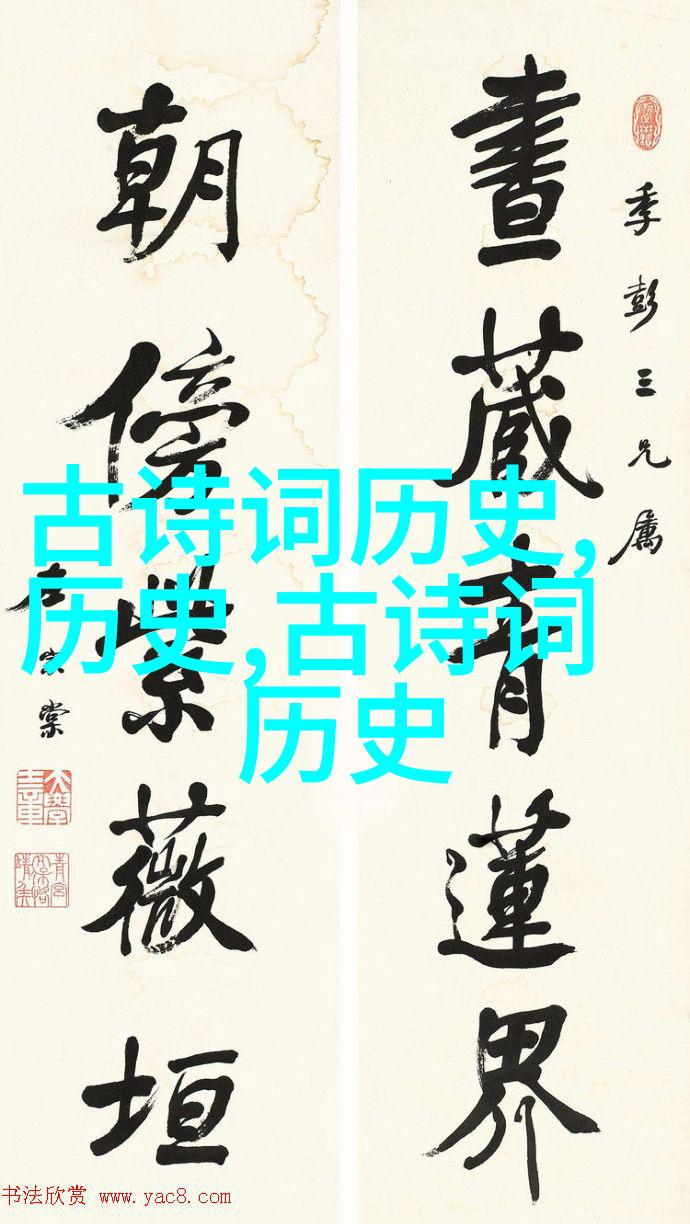 季彭三兄属
晝藏青蓮界
朝傍紫薇垣
左宗棠
古诗词历史,
历史,古诗词
历史
书法欣赏 www.yac8.com